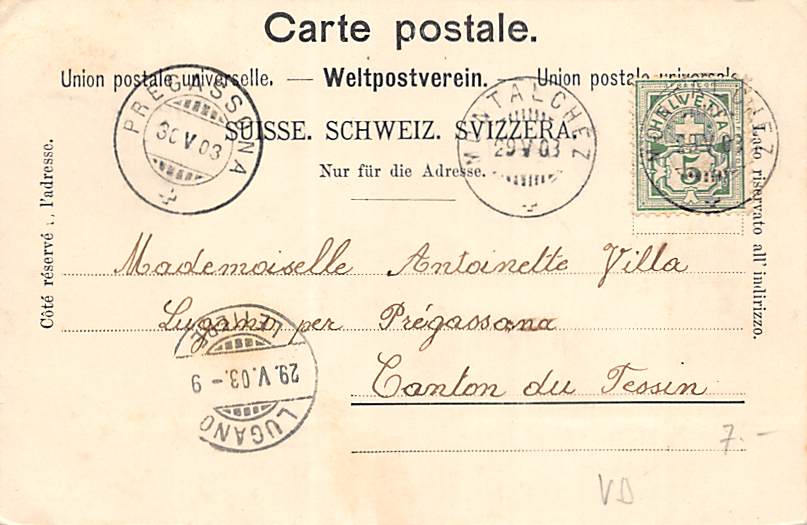 Carte postale.
Union postale universelle. — Weltpostverein. — Union postale universale
SUISSE. SCHWEIZ. SVIZZERA.
Nur für die Adresse.
Côté réservé à l'adresse.
Lato riservato all' indirizzo.
PREGASSONA
30 V 03
MONTALCHEZ
29 V 03
HELVETIA
5
MONTALCHEZ
29 V 03
Mademoiselle Antoinette Villa
Lugano per Prégassona
Canton du Tessin
LETTRE
29. V. 03. - 9
LUGANO
7.-
VD